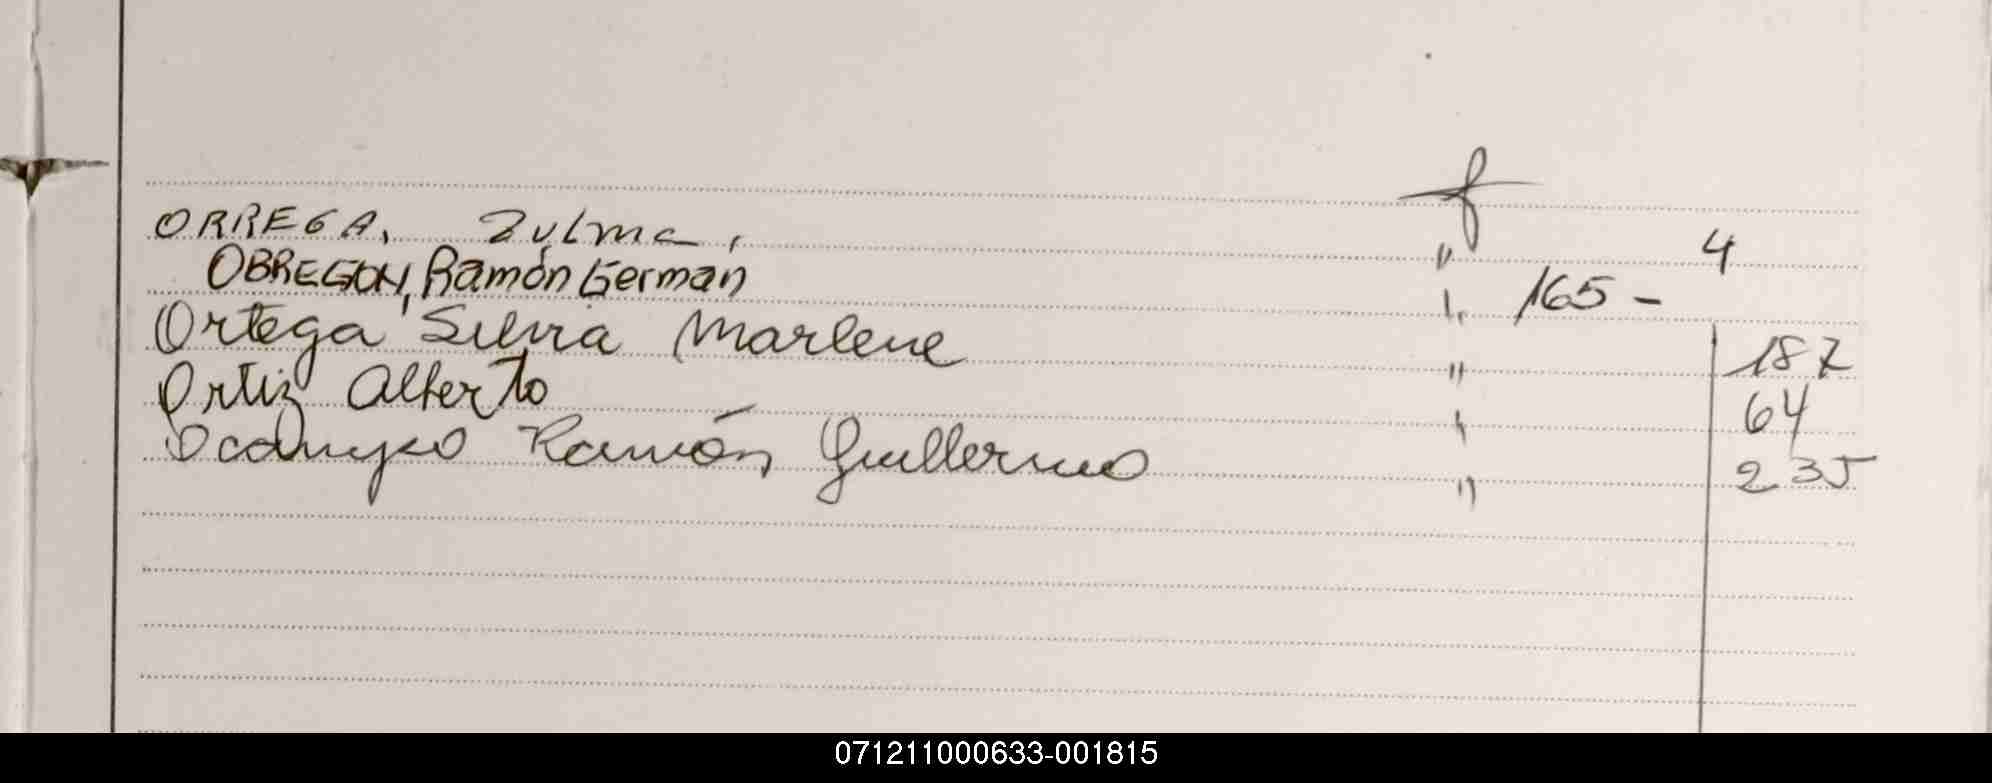 f
ORREGA, Zulma, " 4
OBREGON, Ramón Germán " 165 -
Ortega Silvia Marlene " 187
Ortiz Alberto " 64
Ocampo Ramón Guillermo " 235
071211000633-001815